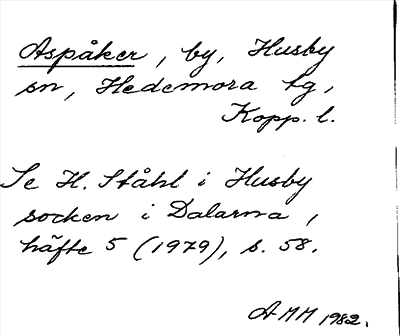 Aspåker, by, Husby
sn, Hedemora tg,
Kopp. l.
Se H. Ståhl i Husby
socken i Dalarna,
häfte 5 (1979), s. 58.
AMM 1982.